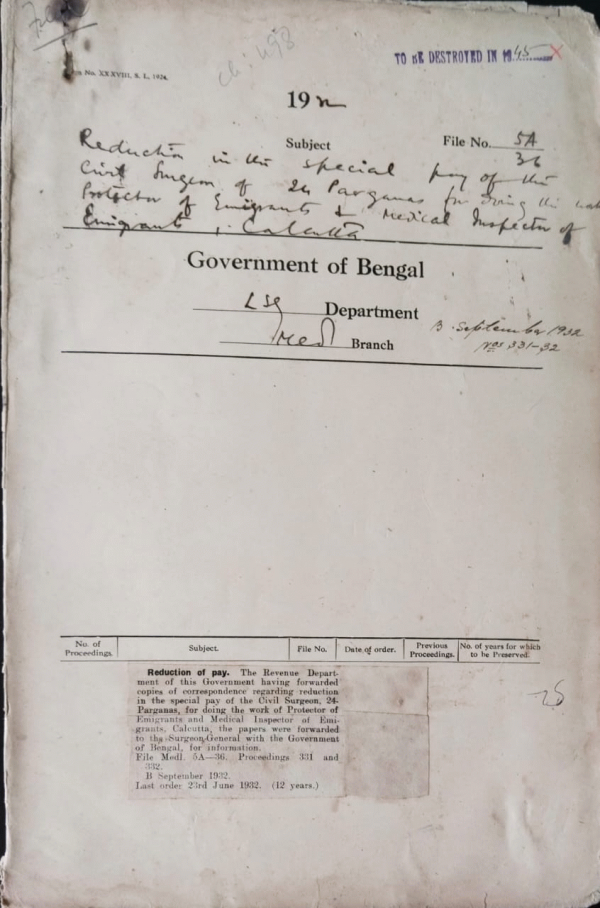 TO BE DESTROYED IN 1945
No. XXXVIII, S. L. 1924.
1932
Subject
File No. 5A/36
Reduction in the special pay of the
Civil Surgeon of 24 Parganas for doing the
Protector of Emigrants & Medical Inspector of
Emigrants, Calcutta
Government of Bengal
LSG Department
Medl Branch
B. September 1932
Nos 331-32
No. of Proceedings. Subject. File No. Date of order. Previous Proceedings. No. of years for which to be Preserved.
Reduction of pay. The Revenue Depart-
ment of this Government having forwarded
copies of correspondence regarding reduction
in the special pay of the Civil Surgeon, 24-
Parganas, for doing the work of Protector of
Emigrants and Medical Inspector of Emi-
grants, Calcutta, the papers were forwarded
to the Surgeon-General with the Government
of Bengal, for information.
File Medl. 5A—36. Proceedings 331 and
332.
B September 1932.
Last order 23rd June 1932. (12 years.)